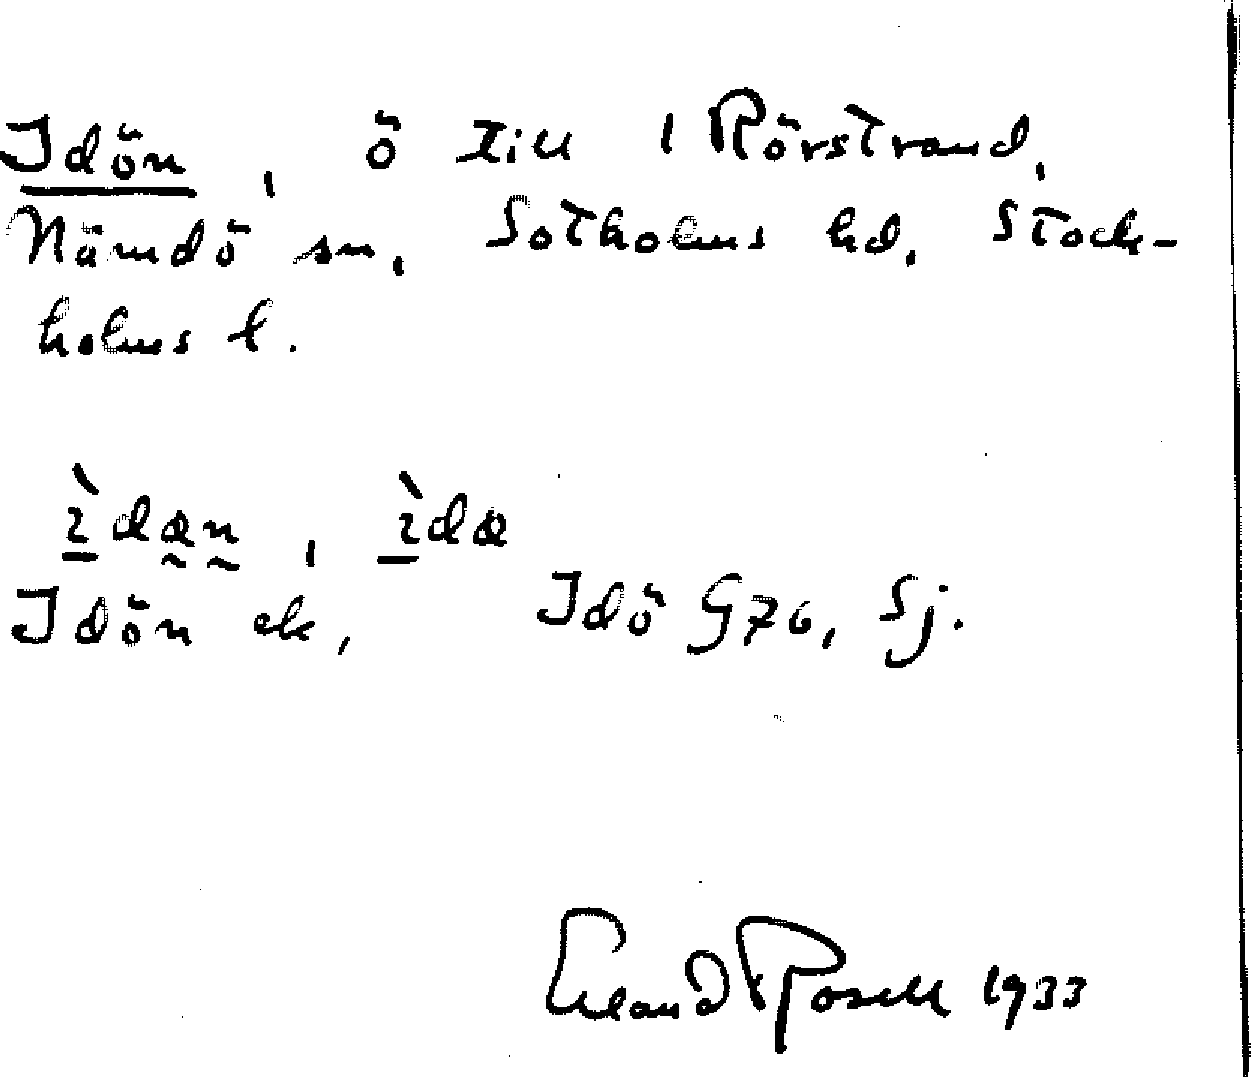 Idön, ö till 1 Rörstrand,
Nämdö sn, Sotholms hd, Stock-
holms l.
ìdœn, ìdœ
Idön ek, Idö G76, Sj.
Erland Rosell 1933